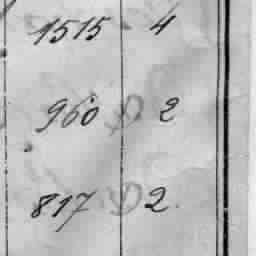 1515 4
960 2
817 2